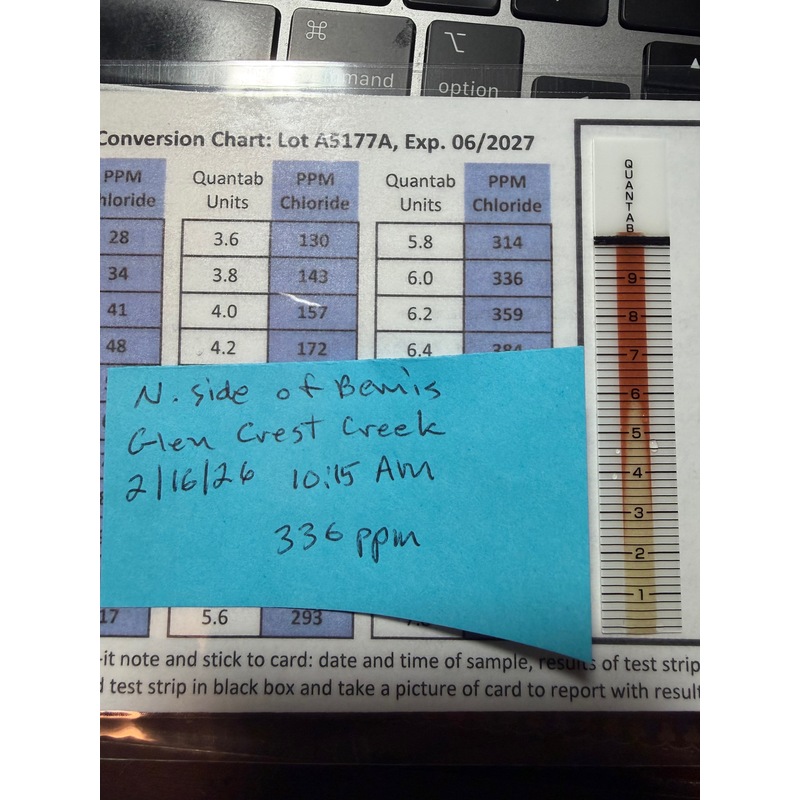 ⌘
command
⌥
option
Conversion Chart: Lot A5177A, Exp. 06/2027
PPM Chloride Quantab Units PPM Chloride Quantab Units PPM Chloride
28 3.6 130 5.8 314
34 3.8 143 6.0 336
41 4.0 157 6.2 359
48 4.2 172 6.4 384
N. side of Bemis
Glen Crest Creek
2/16/26 10:15 AM
336 ppm
17 5.6 293
-it note and stick to card: date and time of sample, results of test strip
test strip in black box and take a picture of card to report with result
QUANTAB
9
8
7
6
5
4
3
2
1